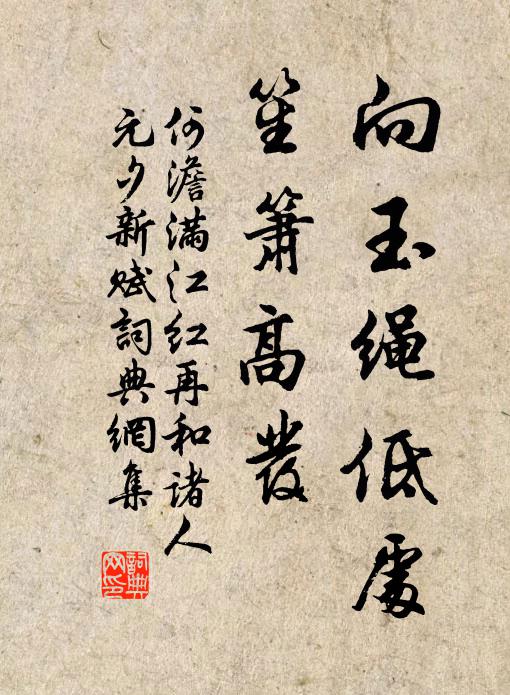 向玉绳低處
笙簫高發
何澹满江红再和诸人
元夕新赋詞典網集
詞典
网印